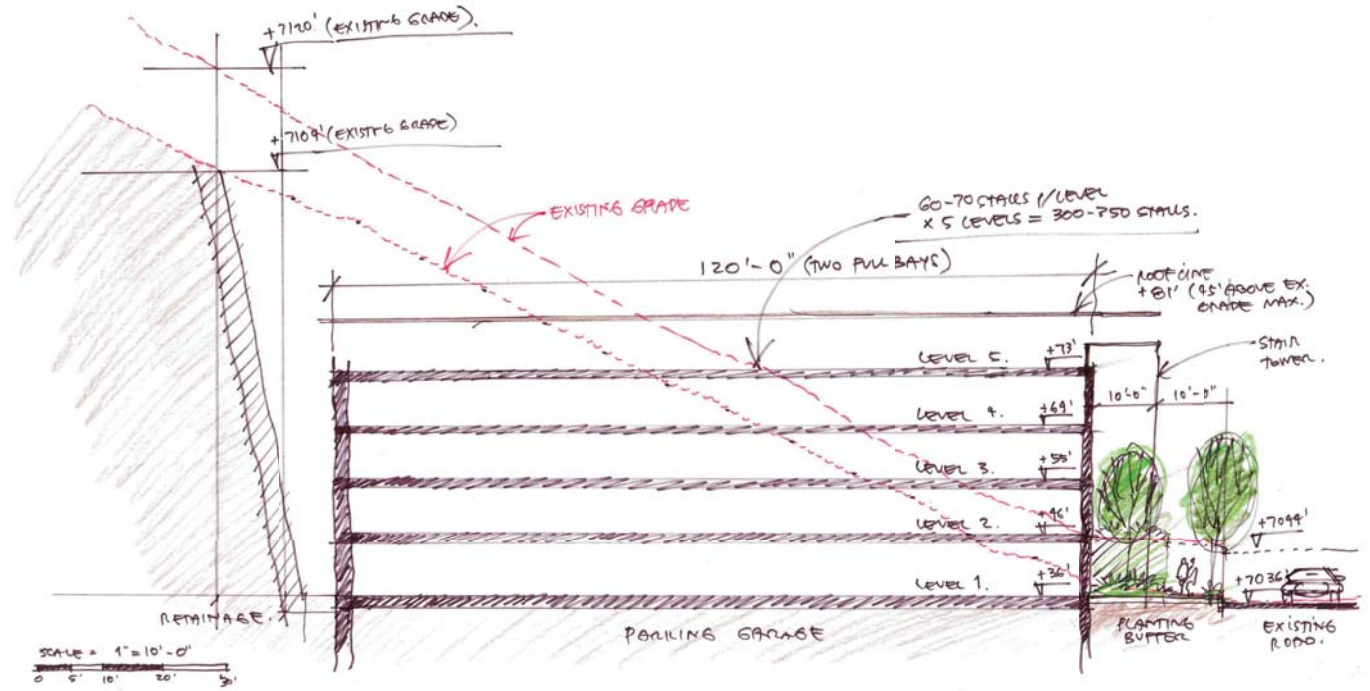 +7120' (EXISTING GRADE).
+7104' (EXISTING GRADE)
EXISTING GRADE
60-70 STALLS //LEVEL
x 5 LEVELS = 300-350 STALLS.
120'-0" (TWO FULL BAYS)
ROOF LINE
+81' (45' ABOVE EX.
GRADE MAX.)
STAIR
TOWER.
LEVEL 5. +73'
10'-0" 10'-0"
LEVEL 4. +64'
LEVEL 3. +55'
LEVEL 2. +46'
+7044'
LEVEL 1. +36'
+7036'
RETAINAGE.
PARKING GARAGE
PLANTING
BUFFER
EXISTING
ROAD.
SCALE = 1"=10'-0"
0 5' 10' 20' 30'